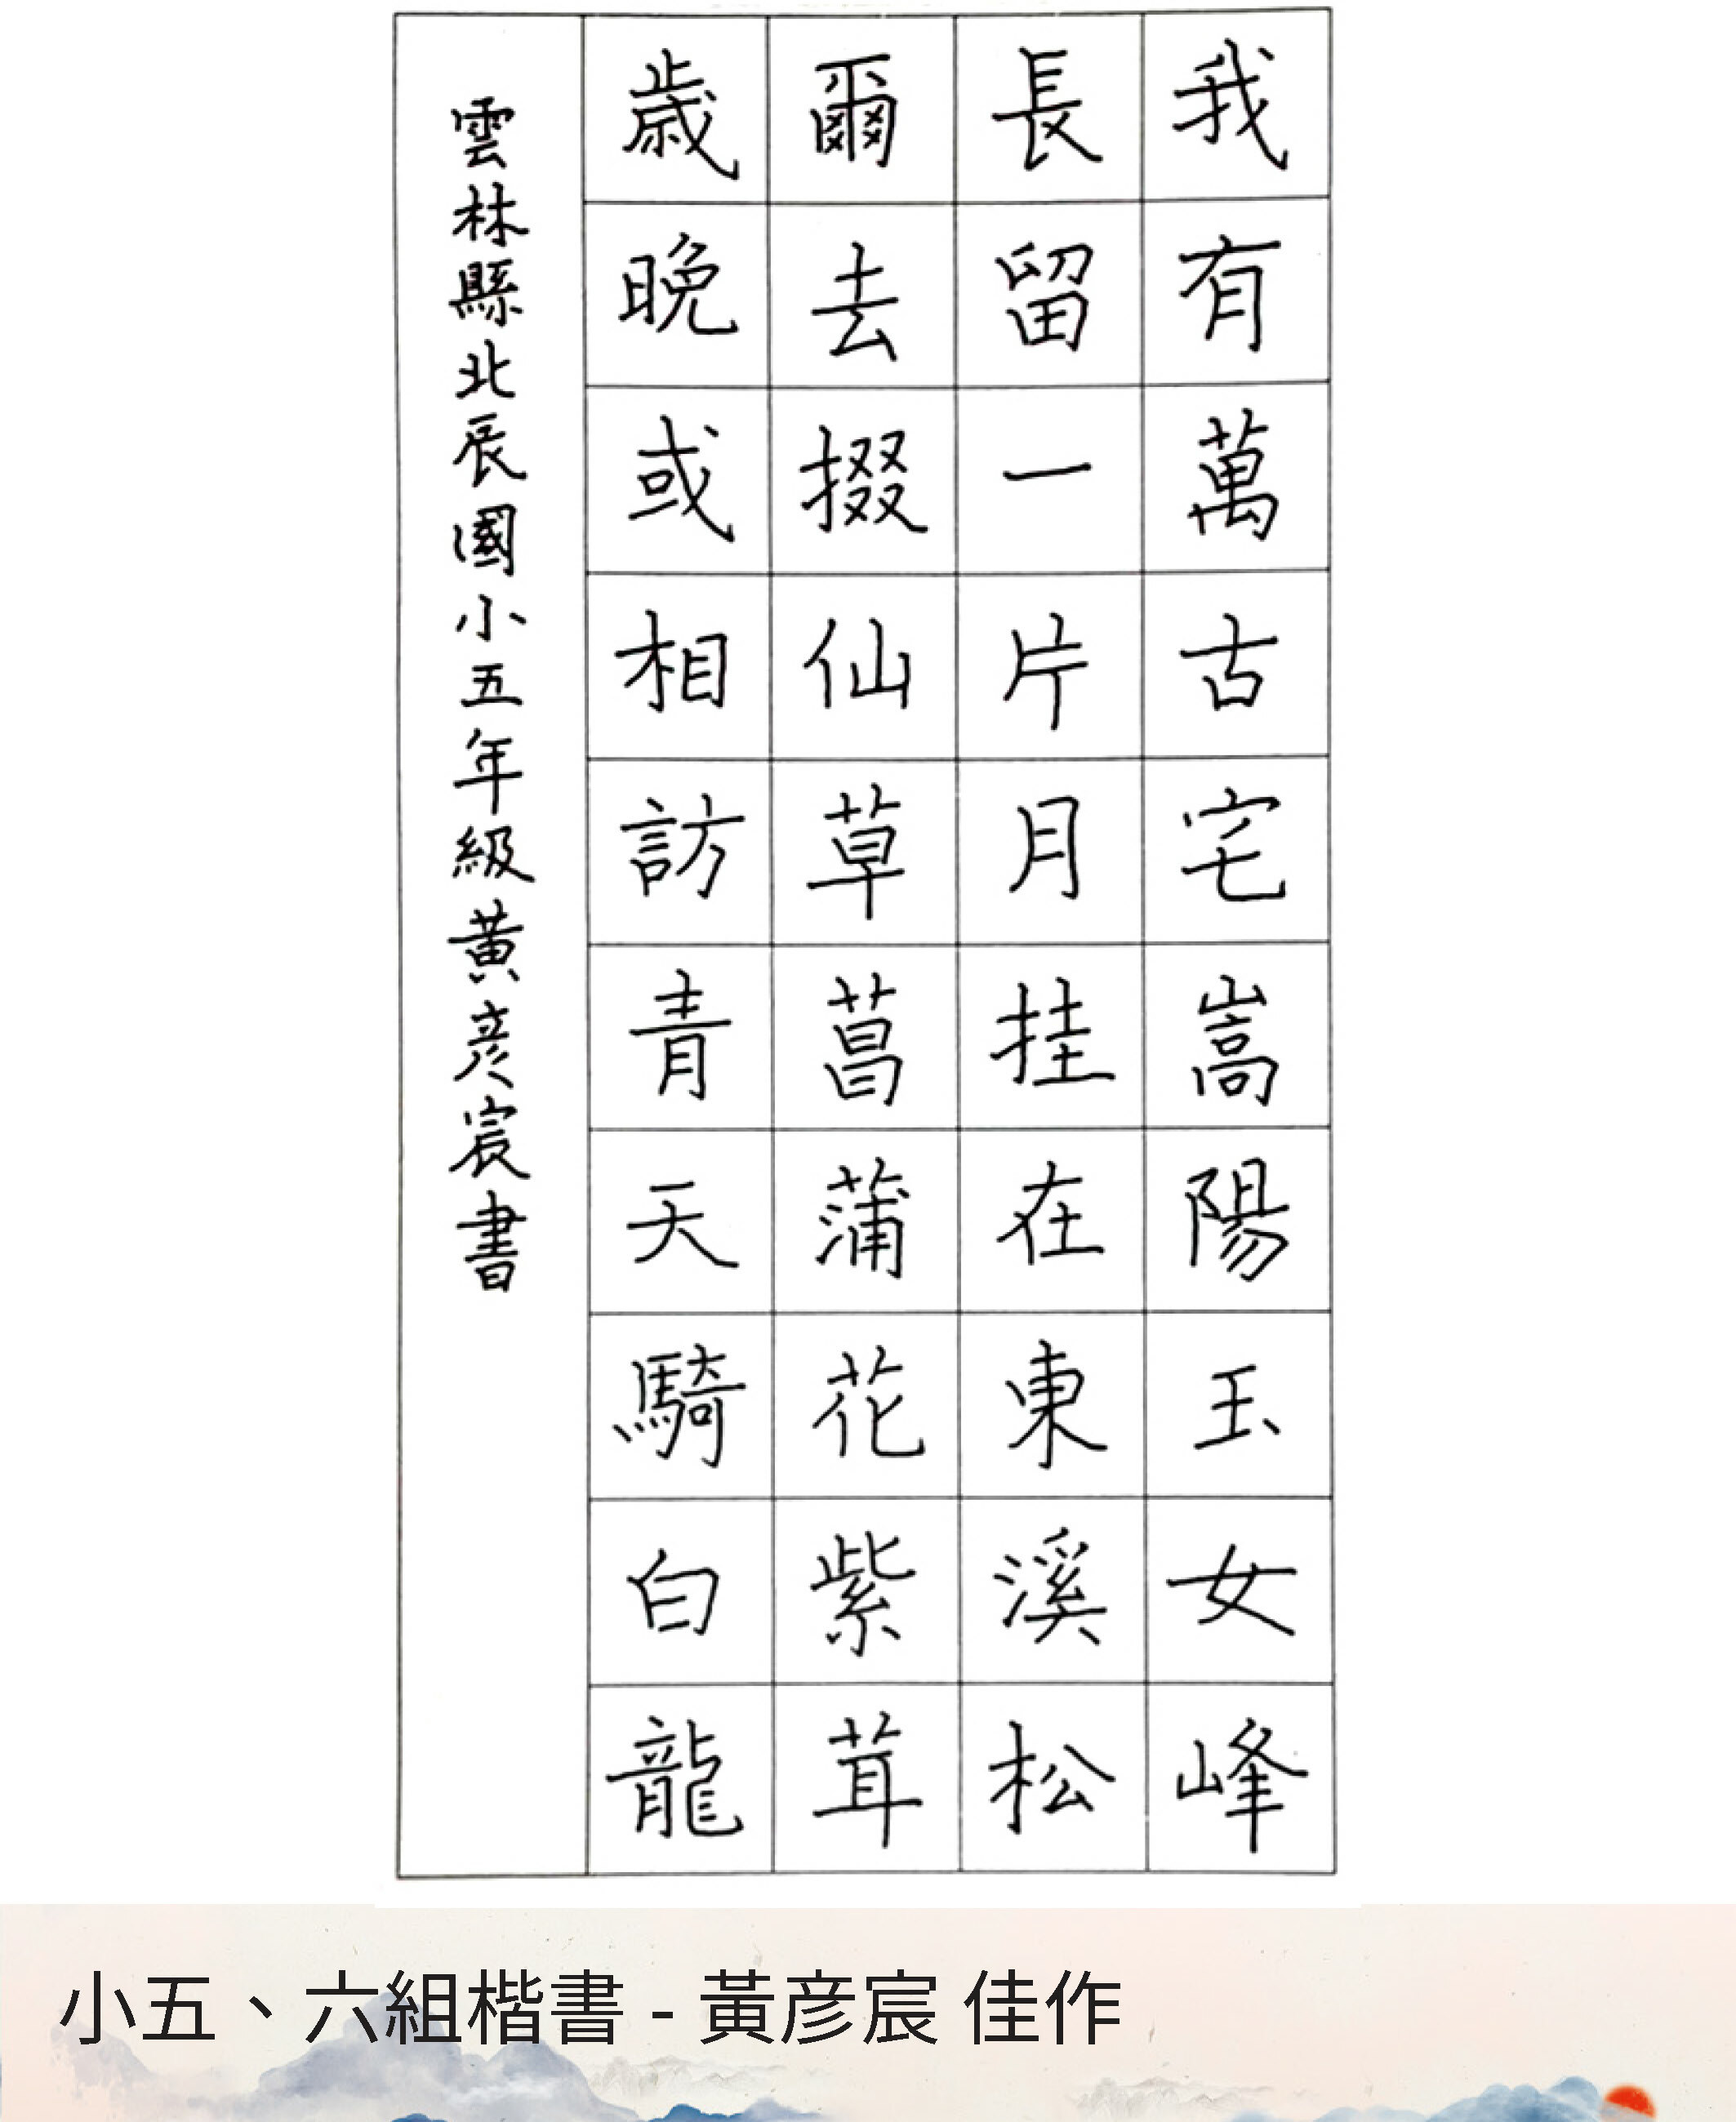 我有萬古宅嵩陽玉女峰
長留一片月挂在東溪松
爾去掇仙草菖蒲花紫茸
歲晚或相訪青天騎白龍
雲林縣北辰國小五年級黃彥宸書
小五、六組楷書 - 黃彥宸 佳作